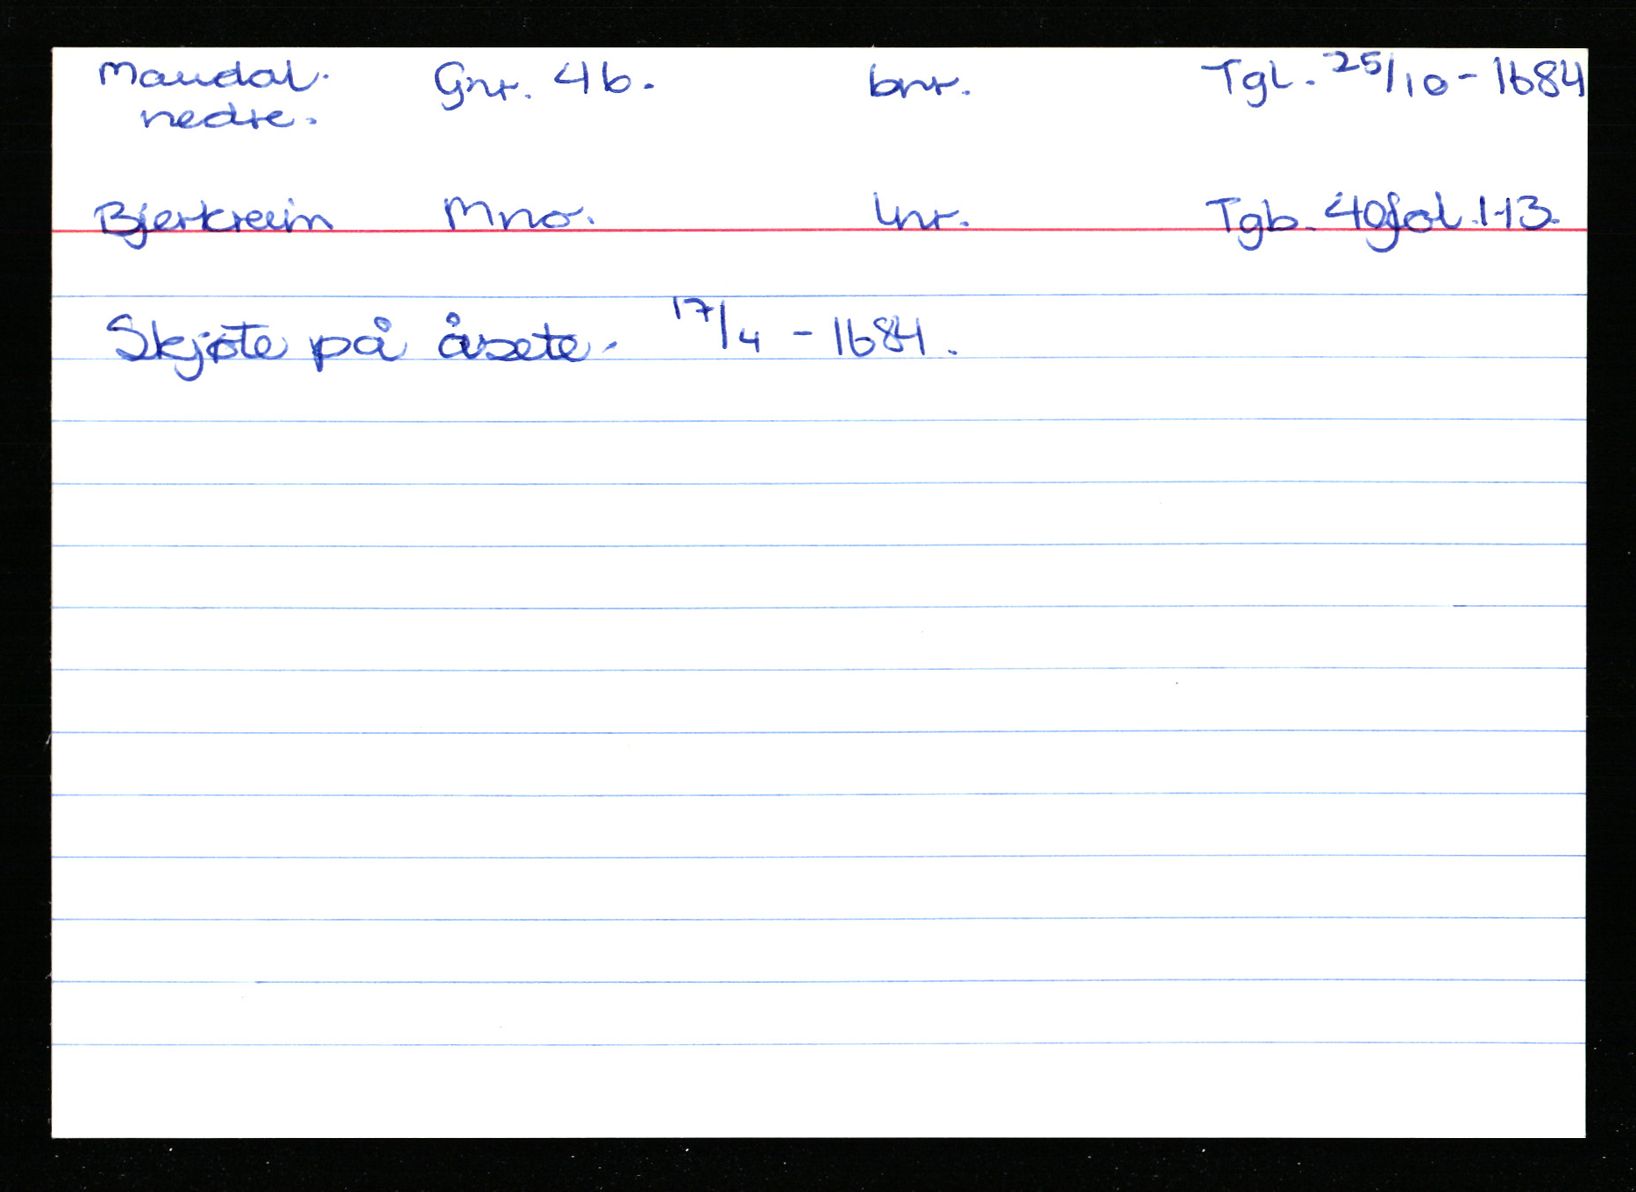 Maudal. Gnr. 46. bnr. Tgl. 25/10 - 1684
nedre.
Bjerkreim Mno. Lnr. Tgb. 40 fol. 113.
Skjøte på åsete. 17/4 - 1684.